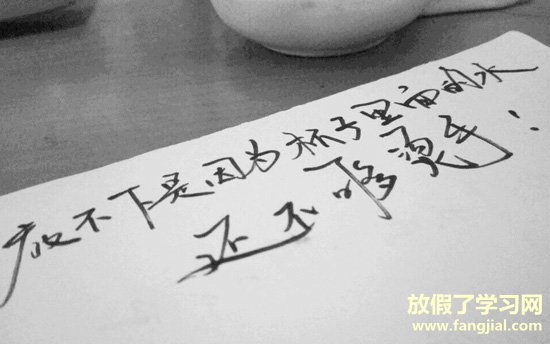 放不下是因为杯子里面的水
还不够烫手!
放假了学习网
www.fangjial.com